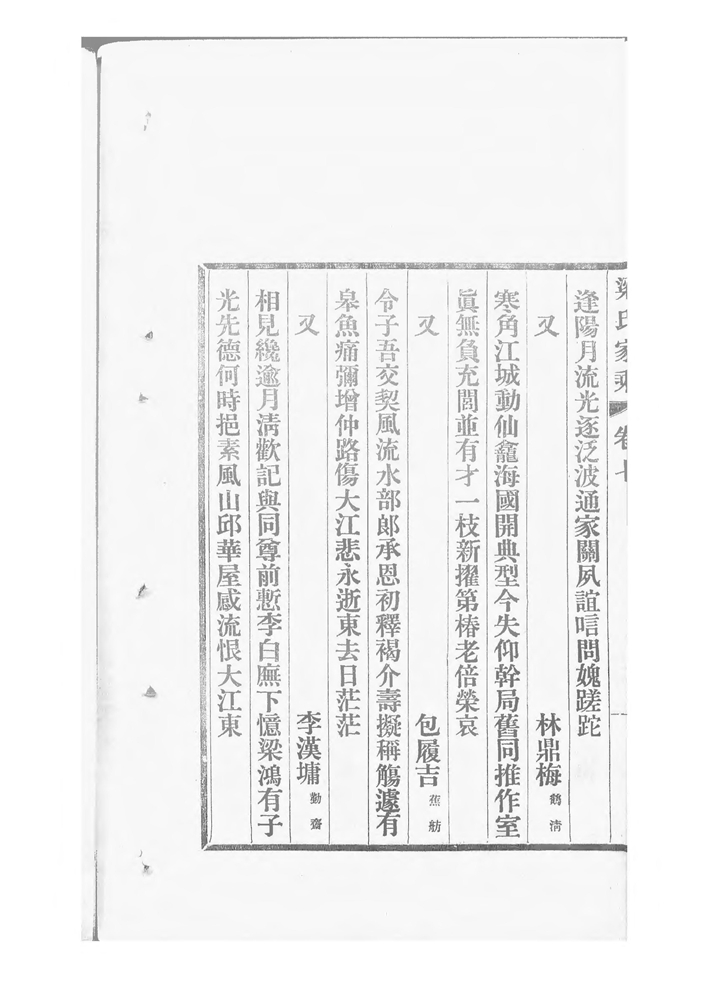 梁氏家乘 卷十
逢陽月流光逐泛波通家關夙誼唁問媿蹉跎
又 林鼎梅 鶴清
寒角江城動仙龕海國開典型今失仰幹局舊同推作室
眞無負充閭並有才一枝新擢第椿老倍榮哀
又 包履吉 蕉舫
令子吾交契風流水部郞承恩初釋褐介壽擬稱觴遽有
皋魚痛彌增仲路傷大江悲永逝東去日茫茫
又 李漢墉 勤齋
相見纔逾月淸歡記與同尊前慙李白廡下憶梁鴻有子
光先德何時挹素風山邱華屋感流恨大江東